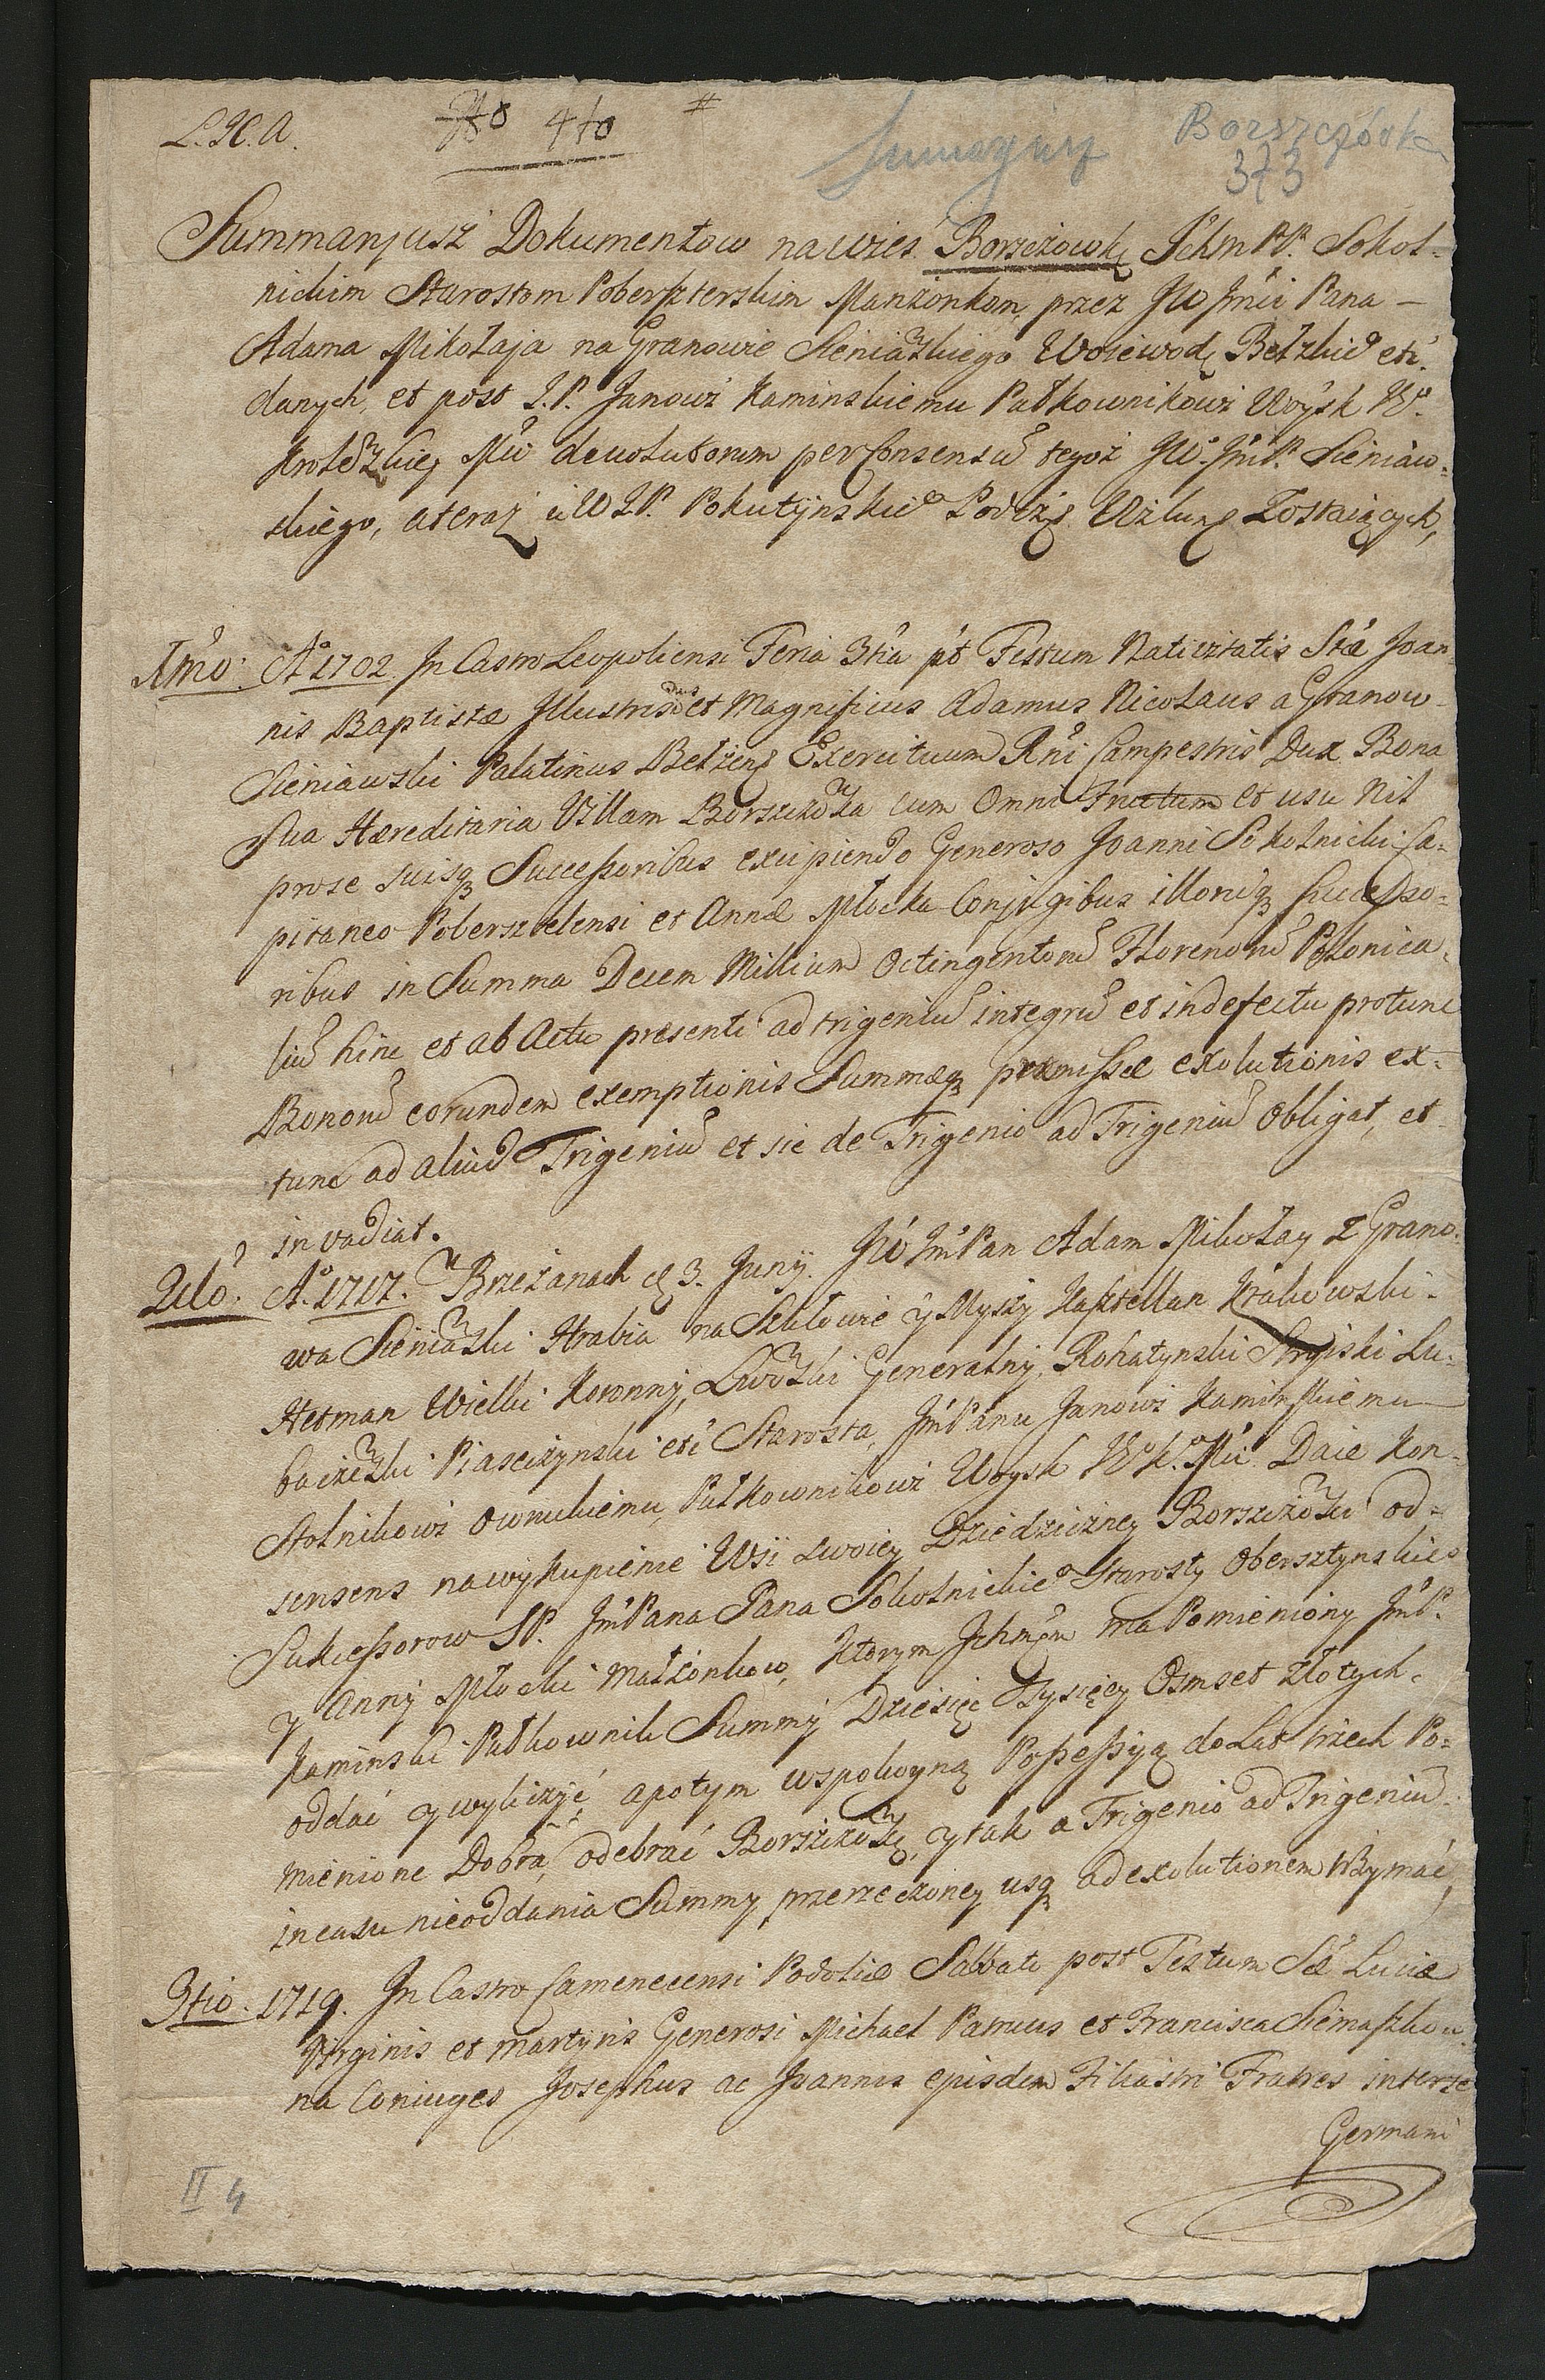 L. X. A.
No 410 #
Sumaryusz Borszczówka
373
Summaryusz Dokumentow na wies Borszczowkę Ichm PP. Sokol-
nickim Starostom Poberszterskim Małżonkom, przez JW Jmći Pana
Adama Mikołaja na Granowie Sieniawskiego Woiewodę Bełzkie etc.
danych, et post J.P. Janowi Kaminskiemu Pułkownikowi Woysk W.
Krolewskiey Mći devolutorum per Consensū tegoż JW. JmP. Sieniaw-
skiego, a teraz u W JP. Pokutynskiego Podcz. Wżłuey Zostaiących,
1mo. Aº 1702. In Castro Leopoliensi Feria 3tia pt Festum Nativitatis Sti Joan-
nis Baptistæ Illustris et Magnificus Adamus Nicolaus a Granow
Sieniawski Palatinus Belzens Exercituum Rni Campestris Dux Bona
Sua Hæreditaria Villam Borszczowka cum Omni Fructum et usu Nil
pro se suisq Successoribus excipiendo Generoso Joanni Sokolnicki Ca-
pitaneo Pobersztelensi et Annæ Młocka Conjugibus illorūq Successo-
ribus in Summa Decem Millium Octingentorū Florenorū Polonica-
liū hinc et ab Actu præsenti ad trigeniū integrū et in defectu protunc
Bonorū eorundem exemptionis Summæq præmissæ exolutionis ex-
tunc ad aliud Trigeniū et sic de Trigenio ad Trigeniū Obligat, et
invadiat.
2do. Aº 1717. w Brzeżanach d 3. Junÿ. JW JmPan Adam Mikołay z Grano-
wa Sieniawski Hrabia na Szkłowie y Myszy Kasztellan Krakowski
Hetman Wielki Koronny, Lwowski Generalny, Rohatynski Stryiski Lu-
baczewski Piaseczynski etc Starosta, JmPanu Janowi Kaminskiemu
Stolnikowi Owruckiemu, Pułkownikowi Woysk W K. Mći. Daie Kon-
sens na wykupienie Wsi swoiey Dziedziczney Borszczowki od
Sukcessorow SP. JmPana Pana Sokolnickieº Starosty Obersztynskieº
y Anny Młocki Małżonkow, Ktorym Ichmm ma Pomieniony JmP.
Kaminski Pułkownik Summy Dziesięć Tysięcy Osmset złotych
oddać y wyliczyć, a potym w spokoyną Possessyą do Lat trzech Po-
mienione Dobra, odebrać Borszczowkę, y tak a Trigenio ad Trigeniū
in casu nieoddania Summy przerzeczoney usq ad exolutionem trzymać,
3tio. 1719. In Castro Camenecensi Podoliæ Sabbato post Festum Sæ Luciæ
Virginis et Martyris Generosi Michael et Francisca Siemaszkow-
na Coniuges Josephus ac Joannes ejusdem Filiastri Fratres inter se
Germani
II 4